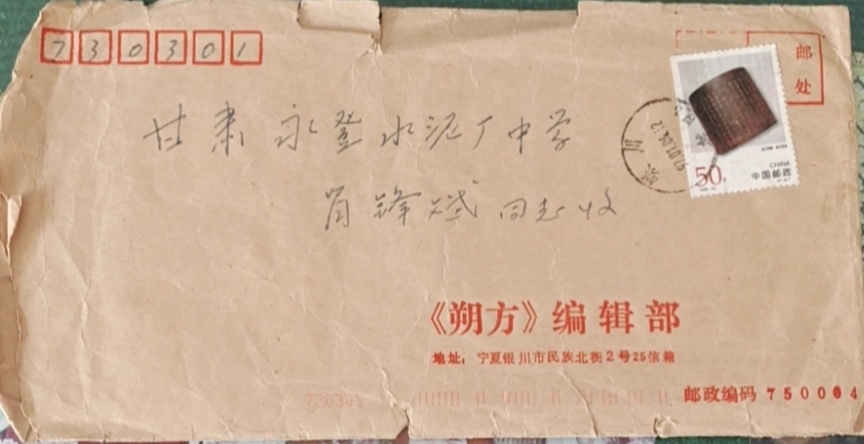 730301
邮
处
甘肃永登水泥厂中学
肖锋斌同志收
50分
CHINA
中国邮政
《朔方》编辑部
地址：宁夏银川市民族北街2号25信箱
730301
邮政编码 750004